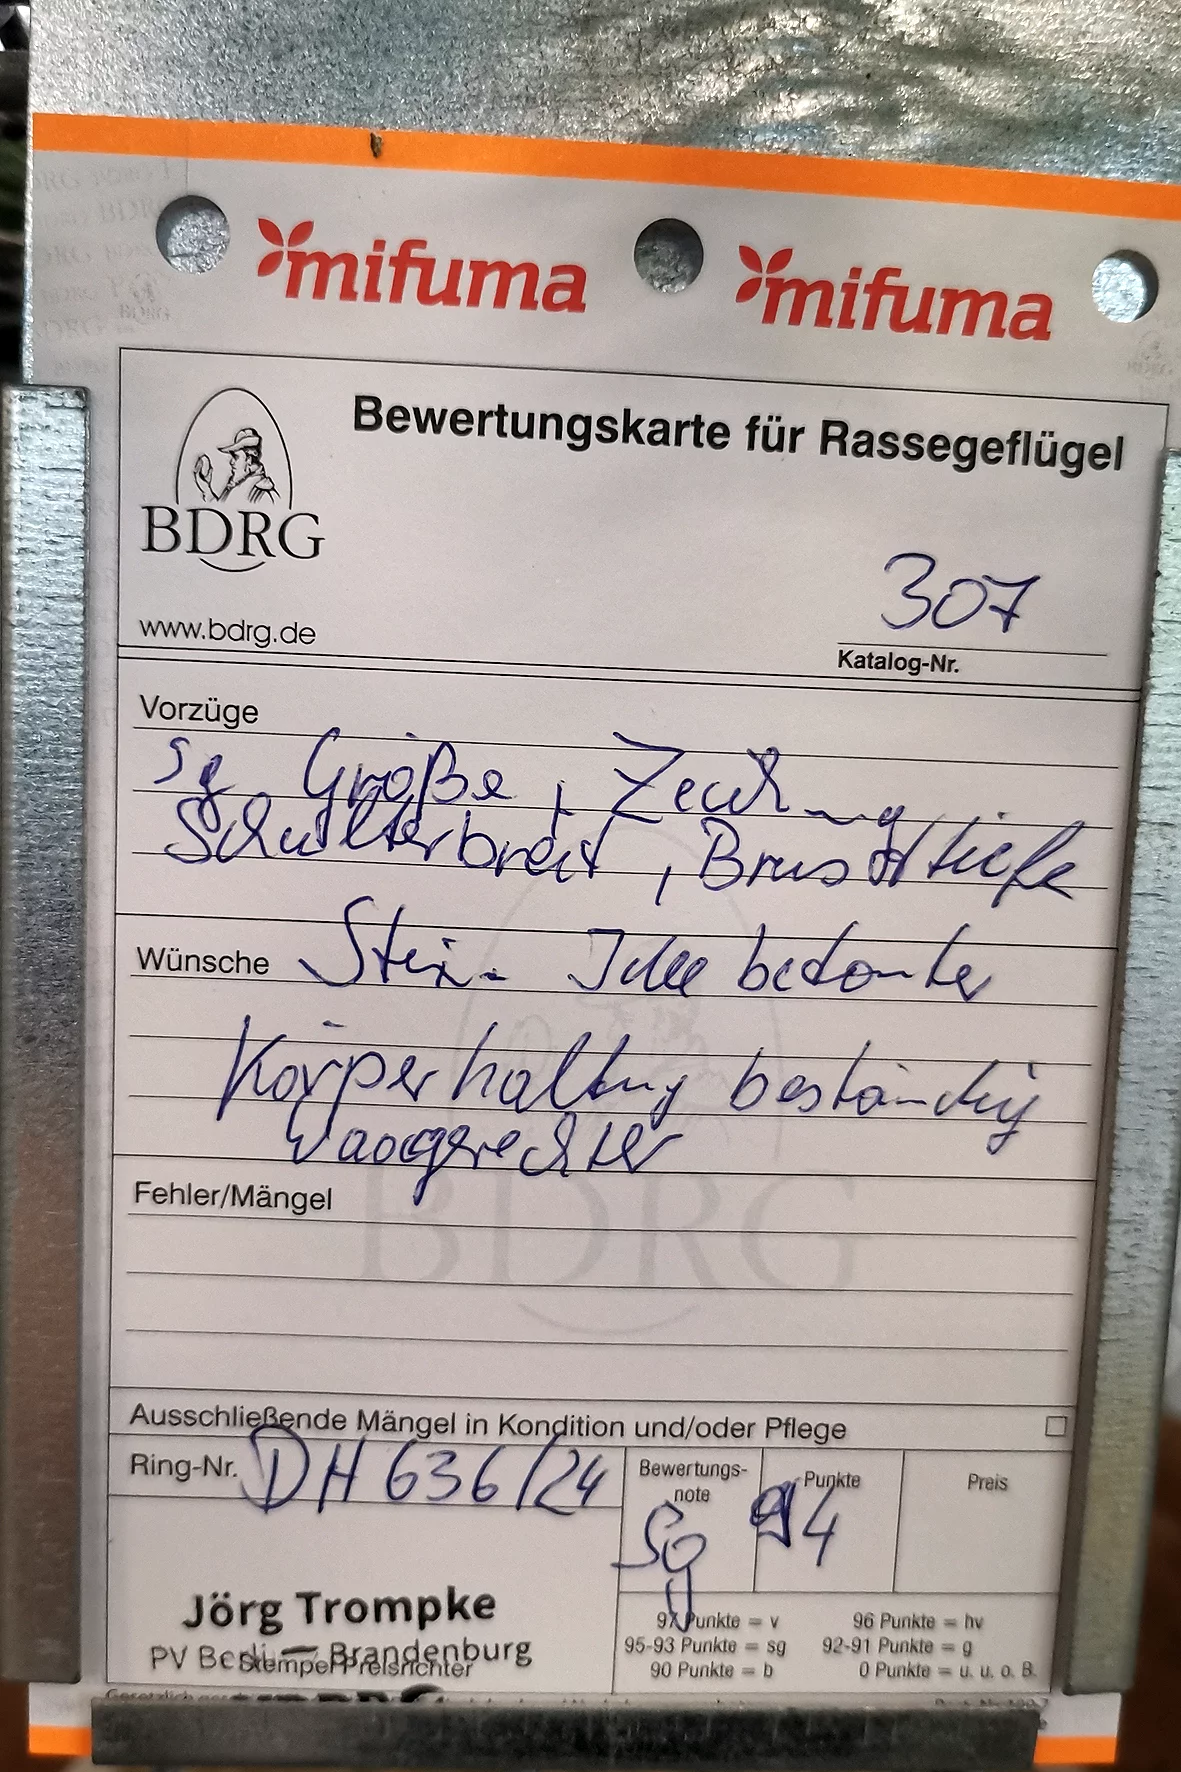 mifuma mifuma
Bewertungskarte für Rassegeflügel
BDRG
307
www.bdrg.de
Katalog-Nr.
Vorzüge
sg Größe, Zeichnung
Schulterbreit, Brusttiefe
Wünsche betonter
Körperhaltung beständig
waagerechter
Fehler/Mängel
BDRG
Ausschließende Mängel in Kondition und/oder Pflege
Ring-Nr. DH 636/24
Bewertungs-
note
Sg
Punkte
94
Preis
Jörg Trompke
PV Berlin – Brandenburg
Stempel Preisrichter
97 Punkte = v 96 Punkte = hv
95-93 Punkte = sg 92-91 Punkte = g
90 Punkte = b 0 Punkte = u. u. o. B.